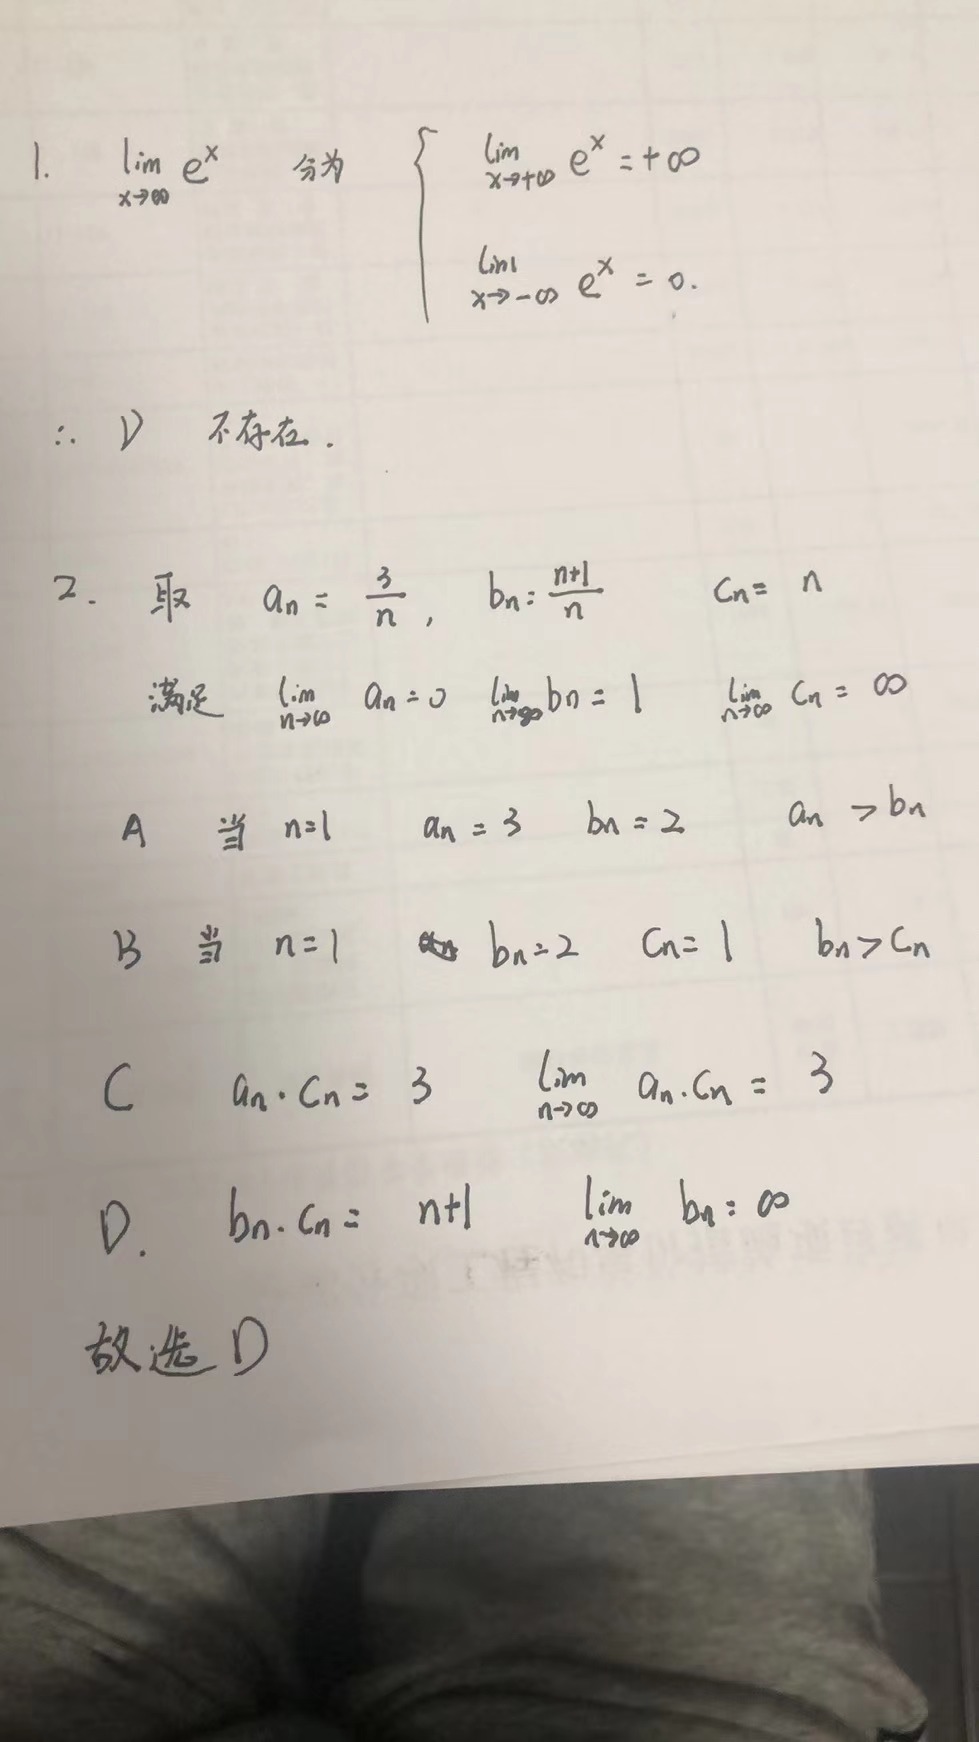 1. lim x→∞ e^x 分为 { lim x→+∞ e^x = +∞
lim x→-∞ e^x = 0.
∴ D 不存在.
2. 取 an = 3/n, bn = n+1/n cn = n
满足 lim n→∞ an = 0 lim n→∞ bn = 1 lim n→∞ cn = ∞
A 当 n=1 an = 3 bn = 2 an > bn
B 当 n=1 bn = 2 cn = 1 bn > cn
C an · cn = 3 lim n→∞ an · cn = 3
D. bn · cn = n+1 lim n→∞ bn = ∞
故选 D